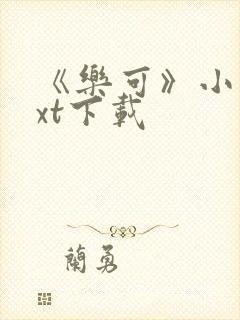 《樂可》小
xt下載
蘭勇